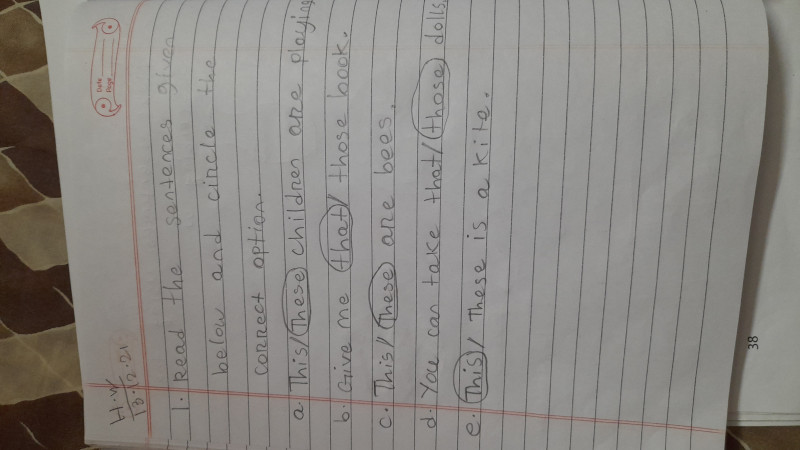 Date
Page
H.W
13.12.21
1. Read the sentences given
below and circle the
correct option.
a. This/ These children are playing
b. Give me that/ those book.
c. This/ These are bees.
d. You can take that/ those dolls.
e. This/ These is a kite.
38